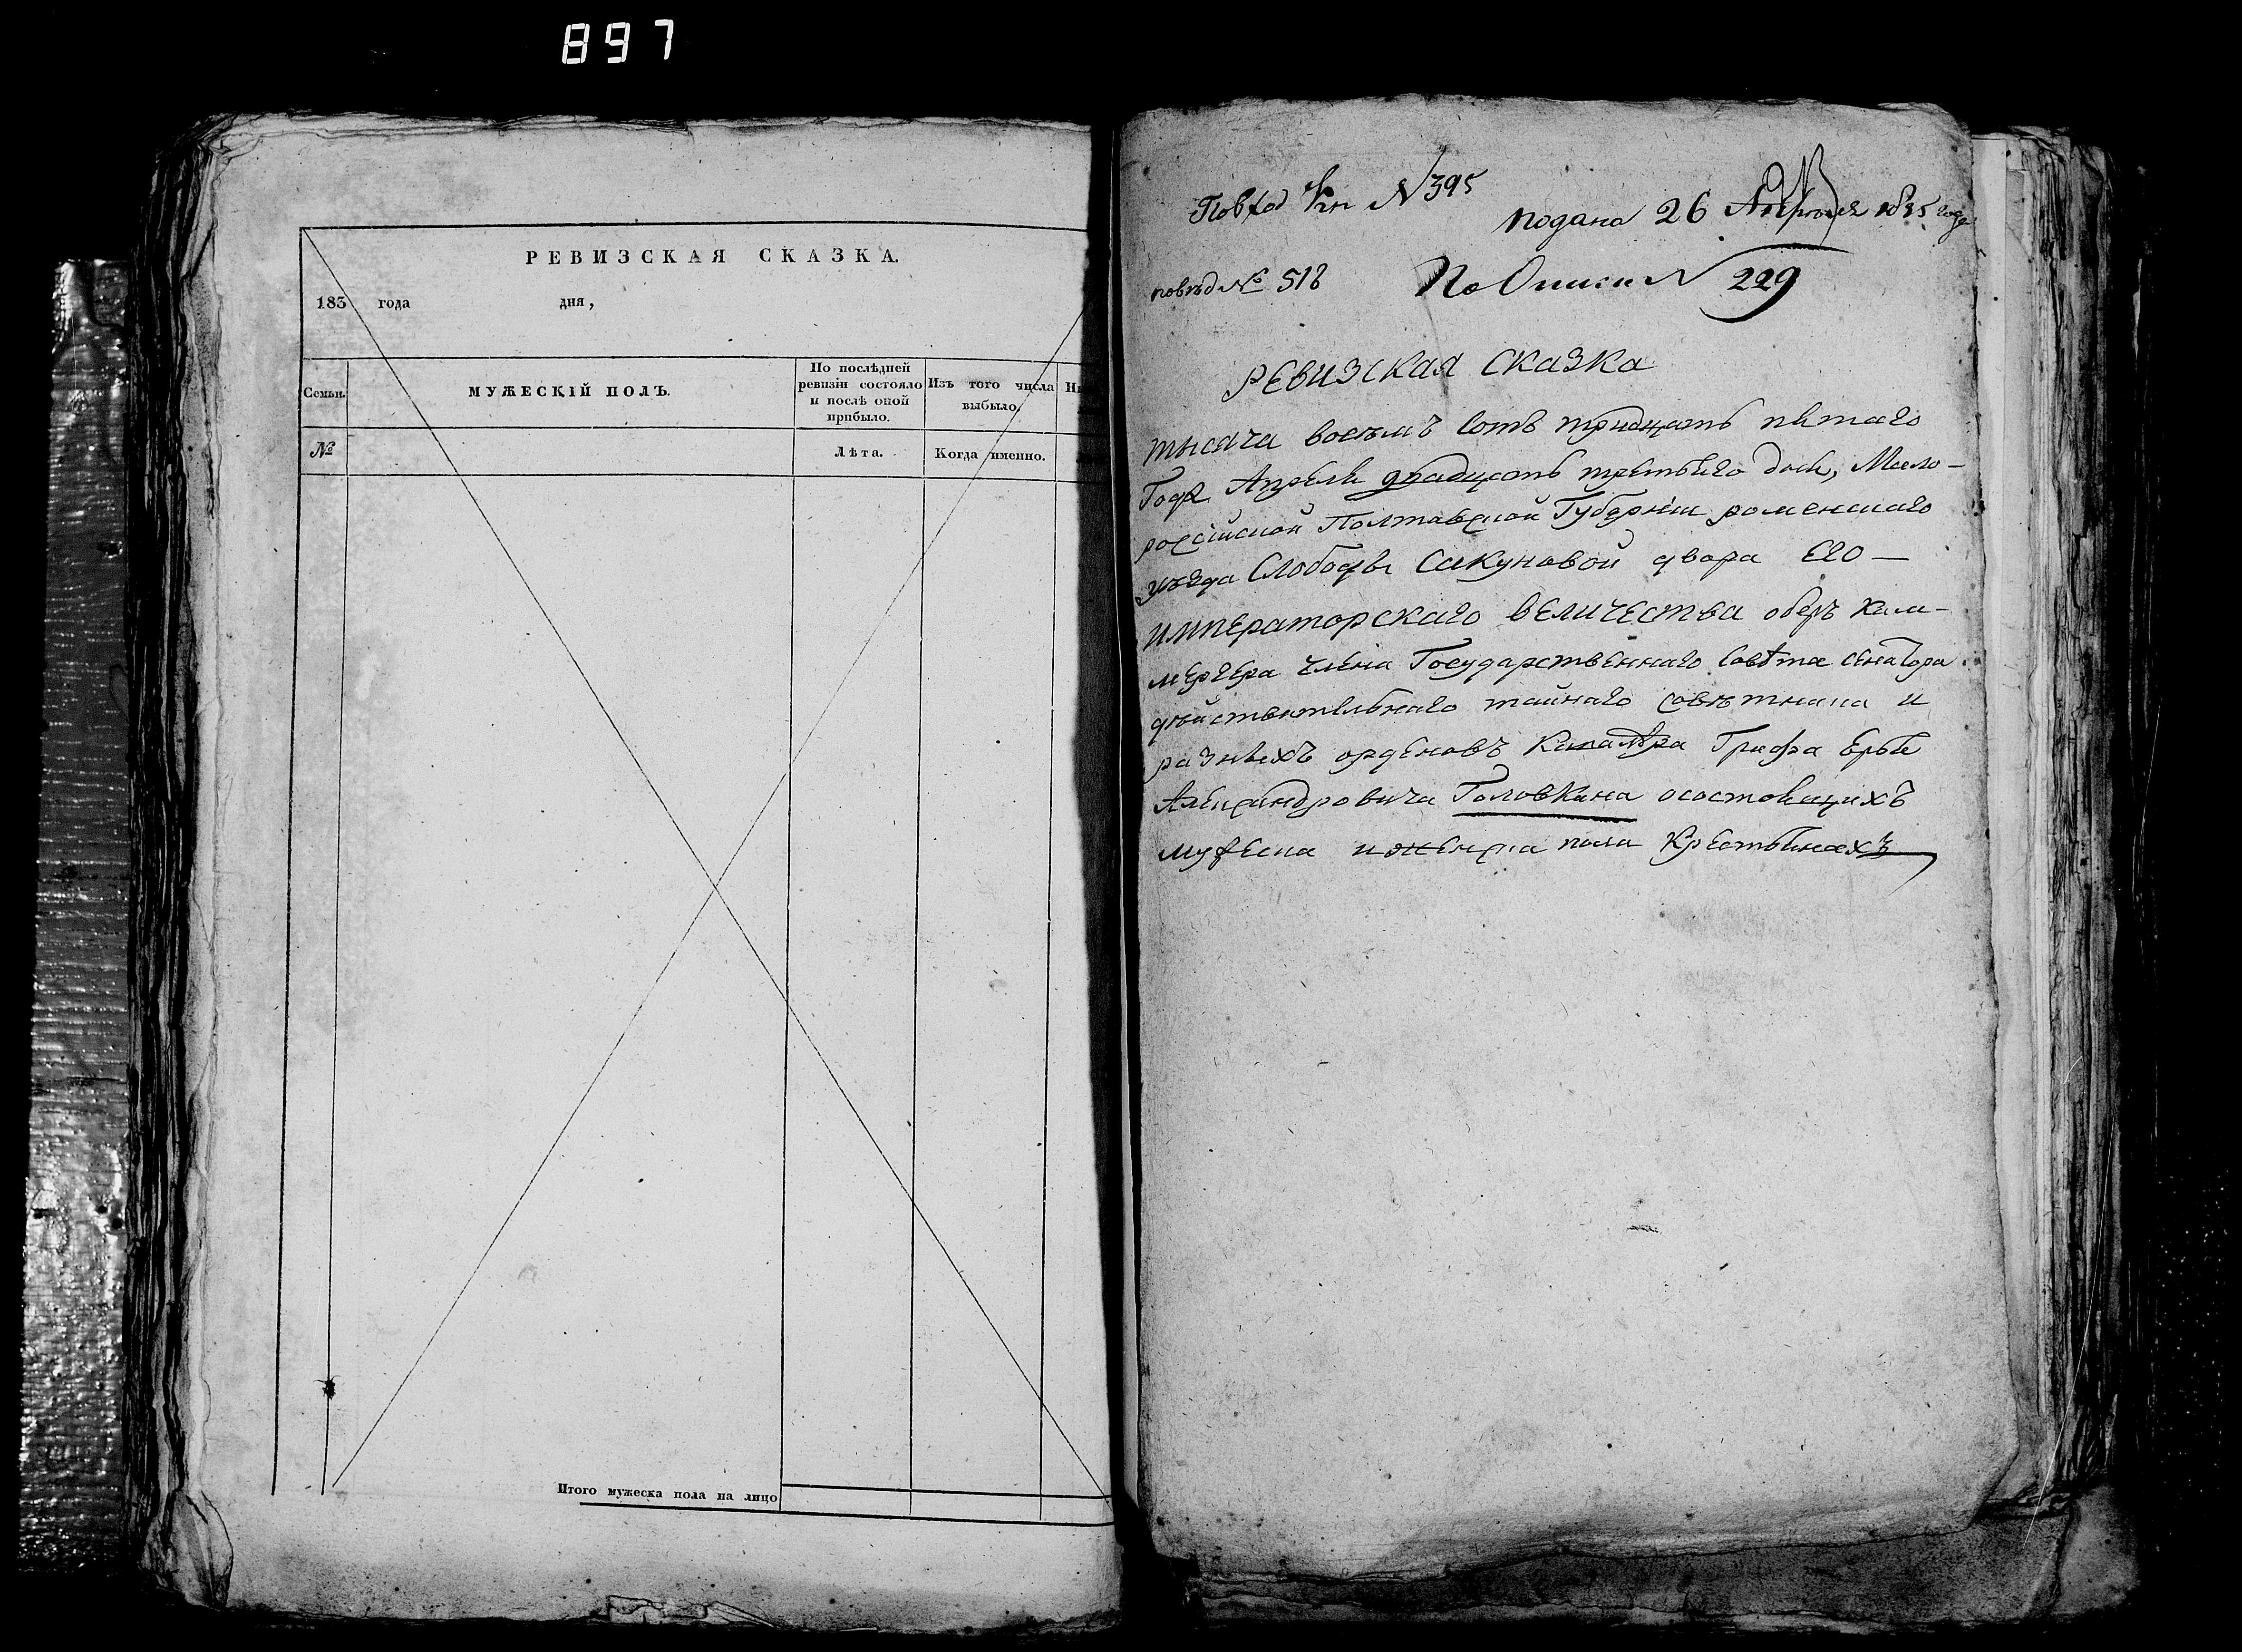 897
РЕВИЗСКАЯ СКАЗКА.
183 года дня,
Семьи.
МУЖЕСКІЙ ПОЛЪ.
По послѣдней ревизіи состояло и послѣ оной прибыло.
Изъ того числа выбыло.
№
Лѣта.
Когда именно.
Итого мужеска пола на лицо
N 395
подано 26 Апрѣля 1835 года
№ 518
По Описи N 229
РЕВИЗСКАЯ СКАЗКА
тысяча восемъ сотъ тридцать пятаго
Года Апреля двадцать третьяго дня, Мало-
російской Полтавской Губерніи роменскаго
уезда Слободы Сакуновой двора Его
ИМПЕРАТОРСКАГО ВЕЛИЧЕСТВА оберъ кам-
мергера члена Государственнаго Совѣта сенатора
дѣйствительнаго тайнаго совѣтника и
разныхъ орденовъ Кавалѣра Графа
Александровича Головкина осостоящихъ
мужеска иженска пола Крестьянахъ